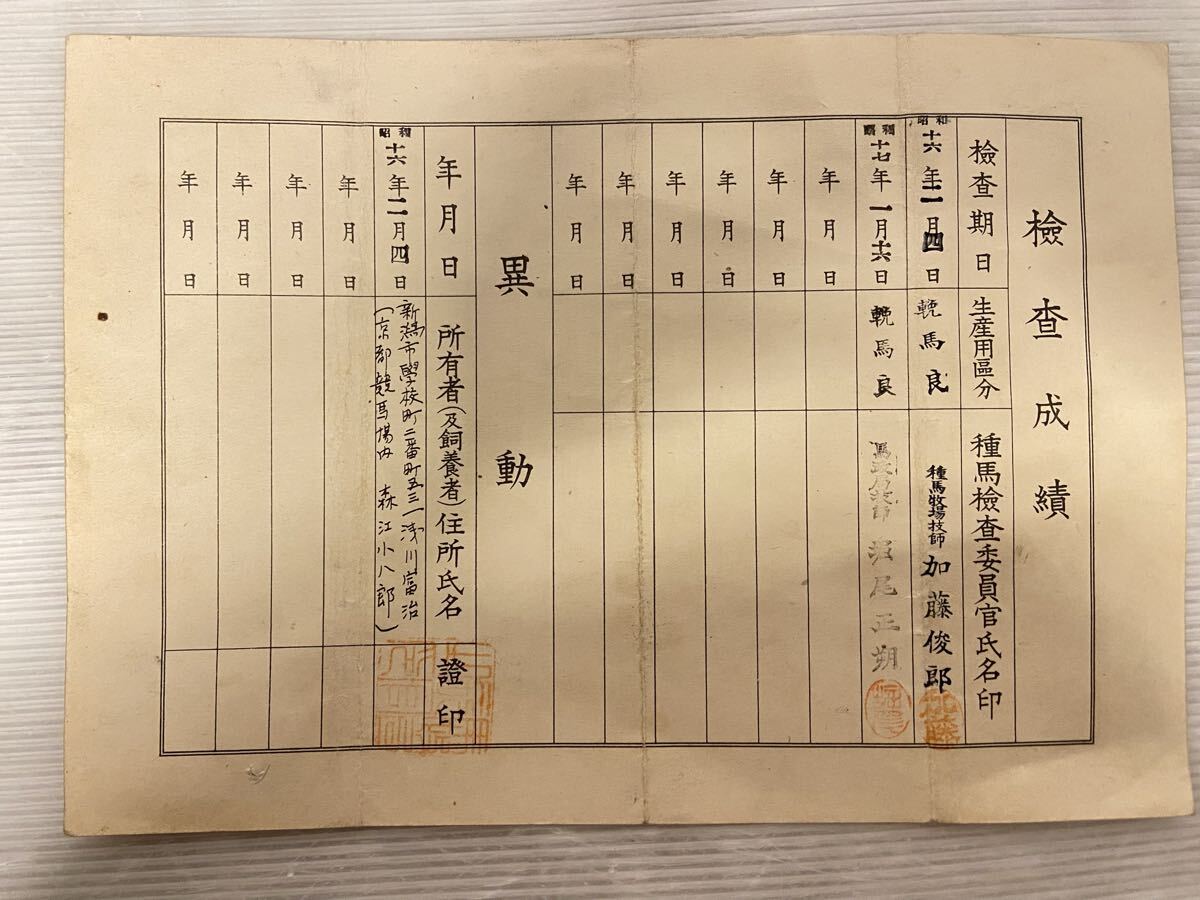 檢査成績
檢査期日
生産用區分
種馬檢査委員官氏名印
昭和十六年二月四日
輓馬良
種馬牧場技師 加藤俊郎
加藤
昭和十七年一月十六日
輓馬良
馬政局技師 堀尾正朔
年月日
年月日
年月日
年月日
年月日
年月日
異動
年月日
所有者(及飼養者)住所氏名
證印
昭和十六年二月四日
新潟市學校町二番町五三一 浅川富治
(京都競馬場内 森江小八郎)
年月日
年月日
年月日
年月日